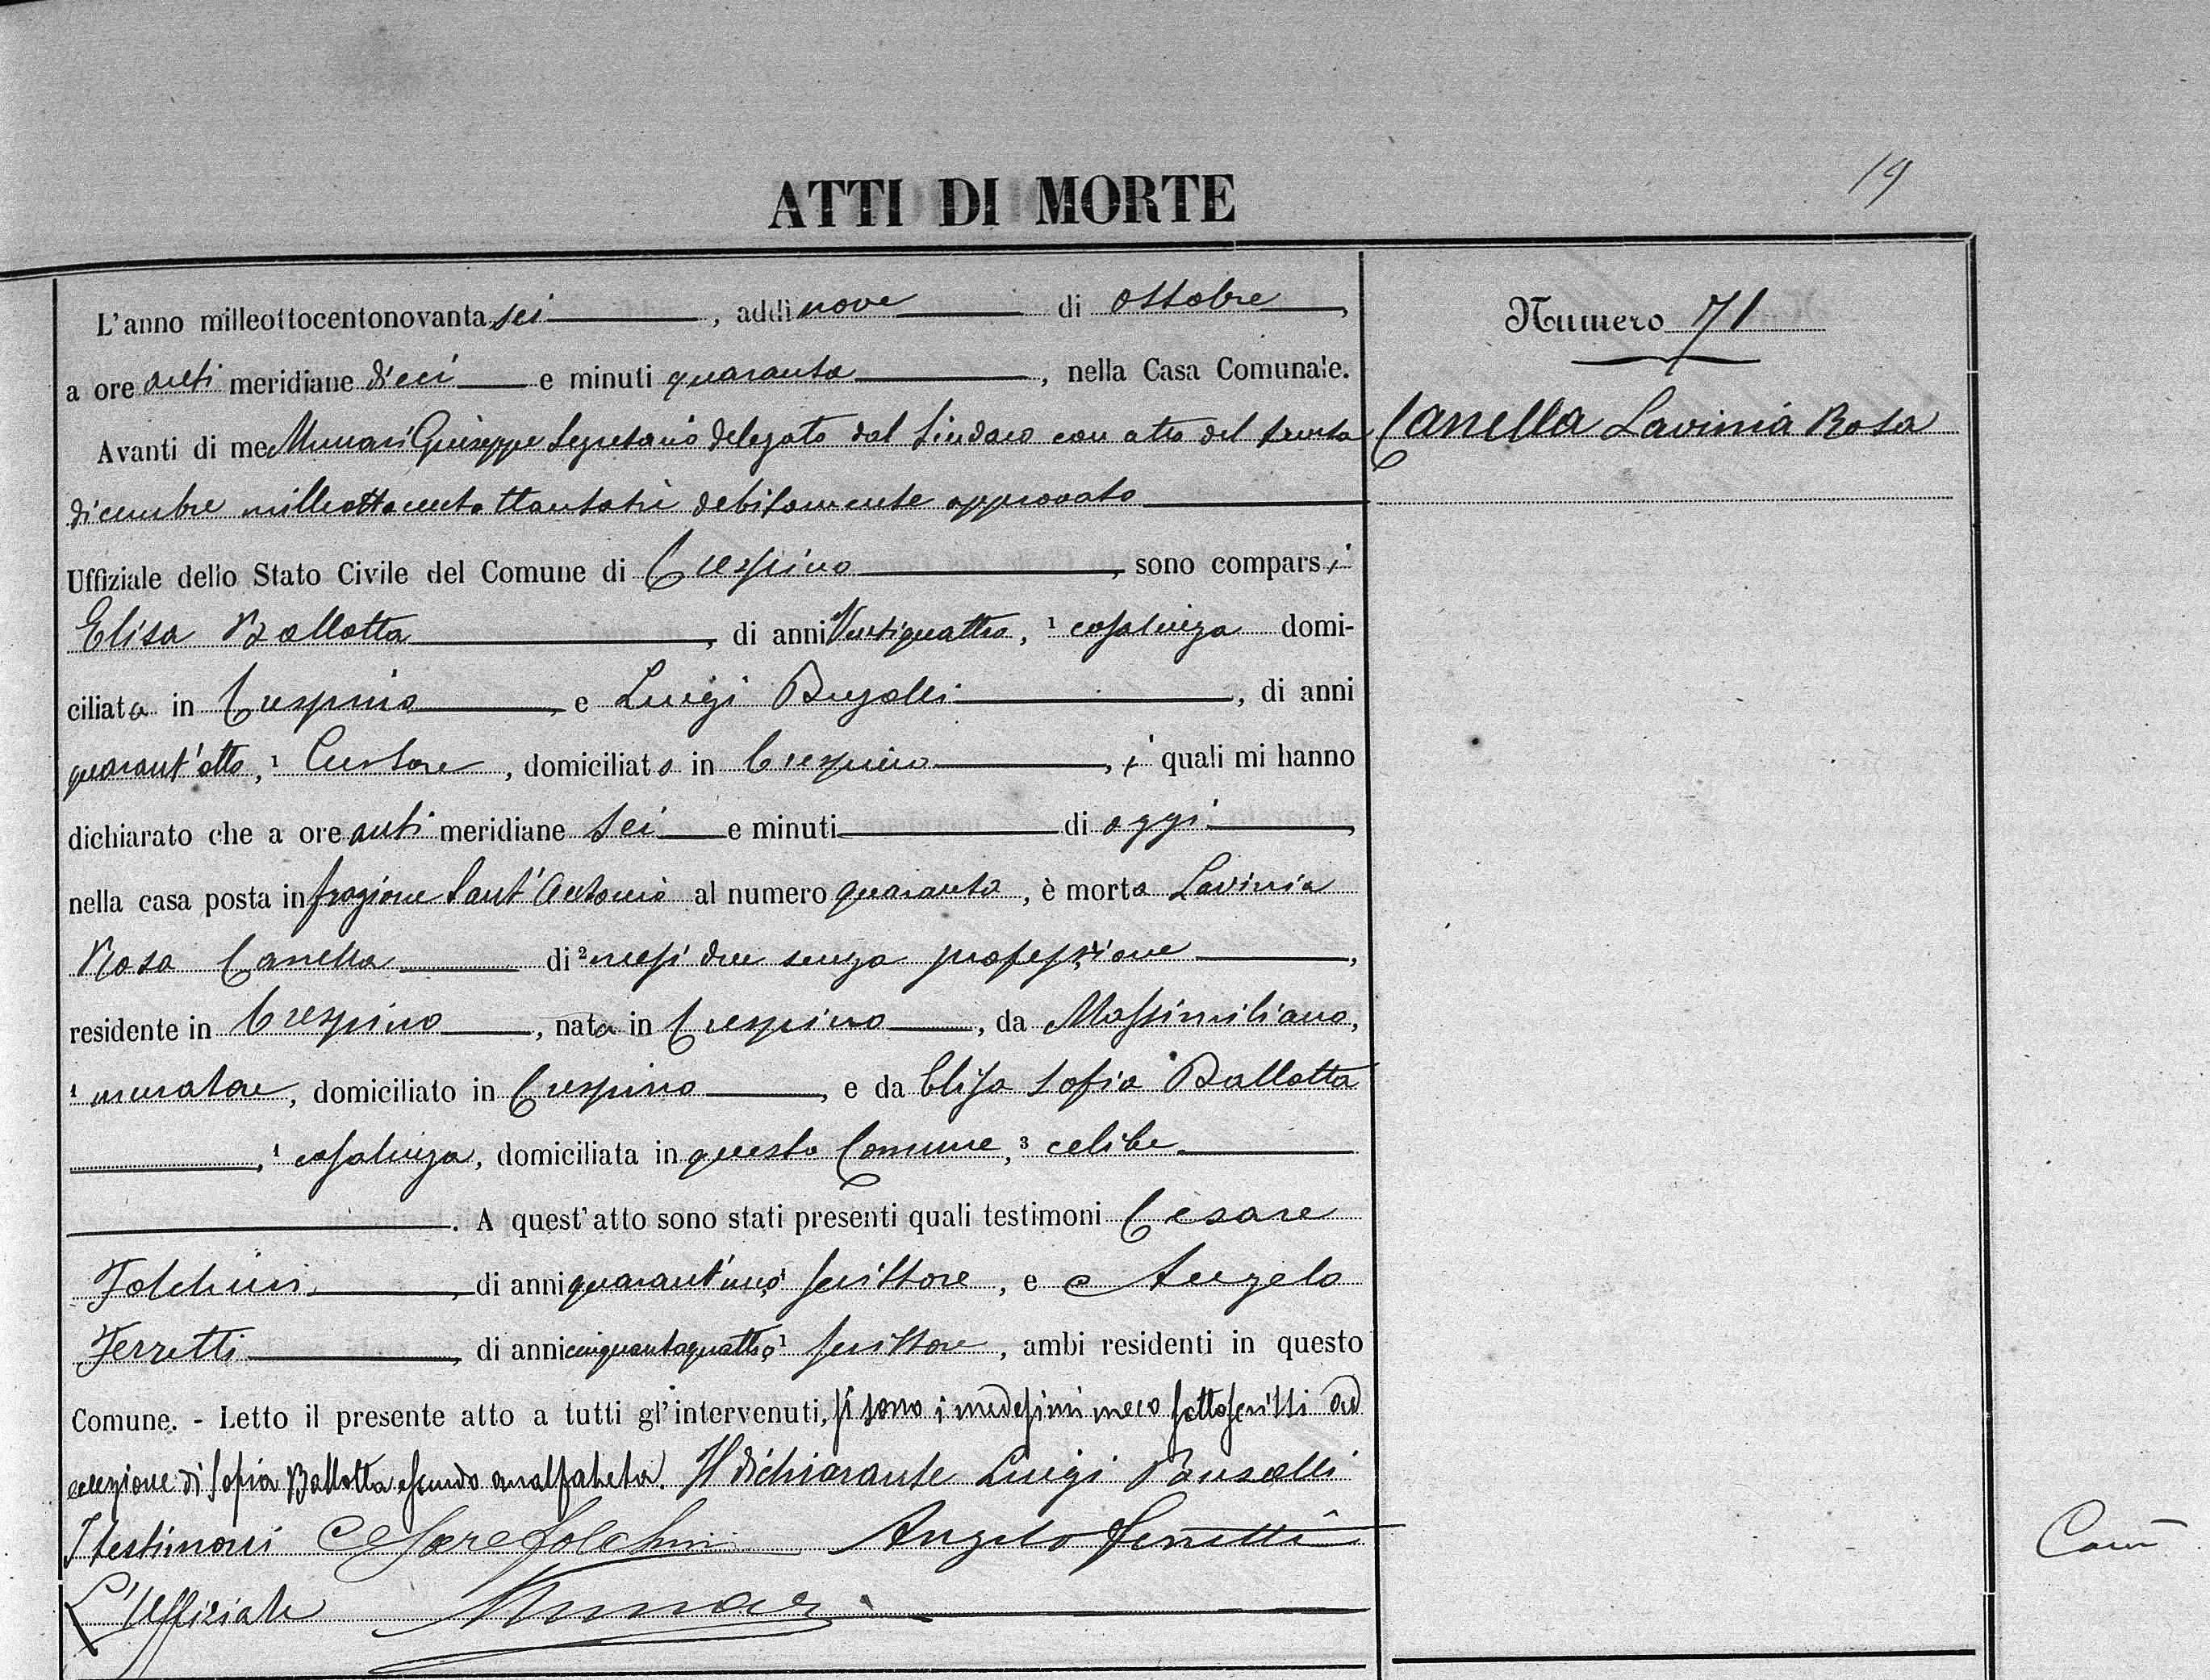 19
ATTI DI MORTE
Numero 71
Canella Lavinia Rosa
L'anno milleottocentonovanta sei, addì nove di ottobre,
a ore anti meridiane dieci e minuti quaranta, nella Casa Comunale.
Avanti di me Munari Giuseppe Segretario delegato dal Sindaco con atto del trenta
dicembre milleottocentottantatre debitamente approvato
Uffiziale dello Stato Civile del Comune di Crespino, sono comparsi
Elisa Ballotta, di anni ventiquattro, ¹ casalinga domi-
ciliata in Crespino e Luigi, di anni
quarant'otto, ¹ Cursore, domiciliato in Crespino, i quali mi hanno
dichiarato che a ore anti meridiane sei e minuti di oggi,
nella casa posta in frazione Sant'Antonio al numero quaranta, è morta Lavinia
Rosa Canella di ² mesi due senza professione,
residente in Crespino, nata in Crespino, da Massimiliano,
¹ muratore, domiciliato in Crespino, e da Elisa Sofia Ballotta
, ¹ casalinga, domiciliata in questo Comune, ³ celibe
. A quest'atto sono stati presenti quali testimoni Cesare
Folchini, di anni quarant'uno, ¹ scrittore, e Angelo
Ferretti, di anni cinquantaquattro, ¹ scrittore, ambi residenti in questo
Comune. - Letto il presente atto a tutti gl'intervenuti, si sono i medesimi meco sottoscritti ad
eccezione di Sofia Ballotta essendo analfabeta. Il dichiarante Luigi
I testimoni Cesare Folchini Angelo Ferretti
L'Uffiziale Munari